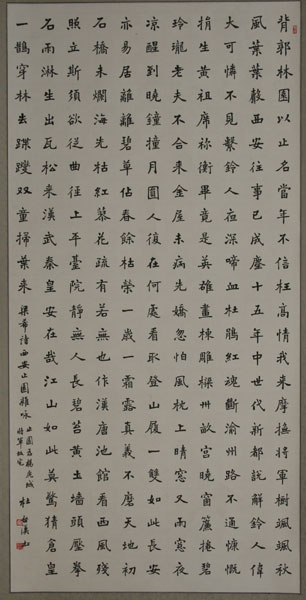 背郭林園以止名當年不信枉高情我來摩挲將軍樹颯颯秋
風葉葉聲西安往事已成塵十五年中世代新都説解鈴人偉
大可憐不見繫鈴人夜深啼血杜鵑紅魂斷渝州路不通慷慨
捐生黃祖席祢衡畢竟是英雄畫棟雕畝宮曉窗簾捲碧
玲瓏老夫不合來金屋未病先嬌忽怕風枕上晴窓又雨
凉醒到曉鐘撞月圓人復在何處看取登山屐一雙如此長安
亦易居離離碧草佔春餘枯榮一歲一霜露真義不磨天地初
石橋未爛海先枯紅蓼花疏有若無也作漢唐池館看西風殘
照立斯須欲從曲徑上平臺院靜無人長碧苔黃土墻頭壓
石雨淋生出瓦松來漢武秦皇安在哉江山如此莫驚猜倉皇
一鵲穿林去蹀躞双童掃葉來 梁希詩西安止園雜詠
止園為楊虎城
將軍故宅